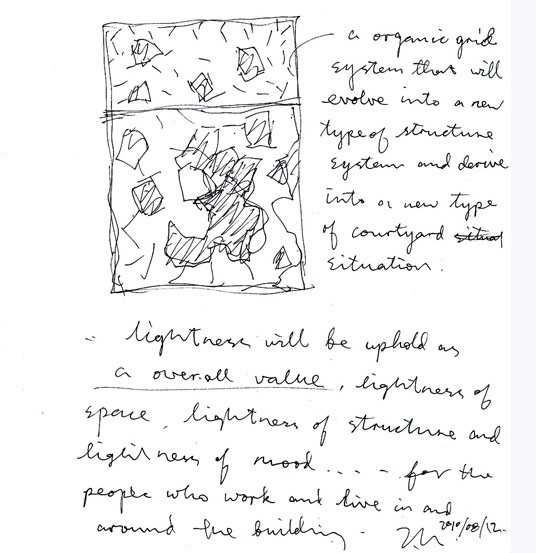 a organic grid
system that will
evolve into a new
type of structure
system and derive
into a new type
of courtyard situat
situation.
- lightness will be uphold as
a overall value, lightness of
space, lightness of structure and
lightness of mood.... - for the
people who work and live in and
around the building.
2010/08/12